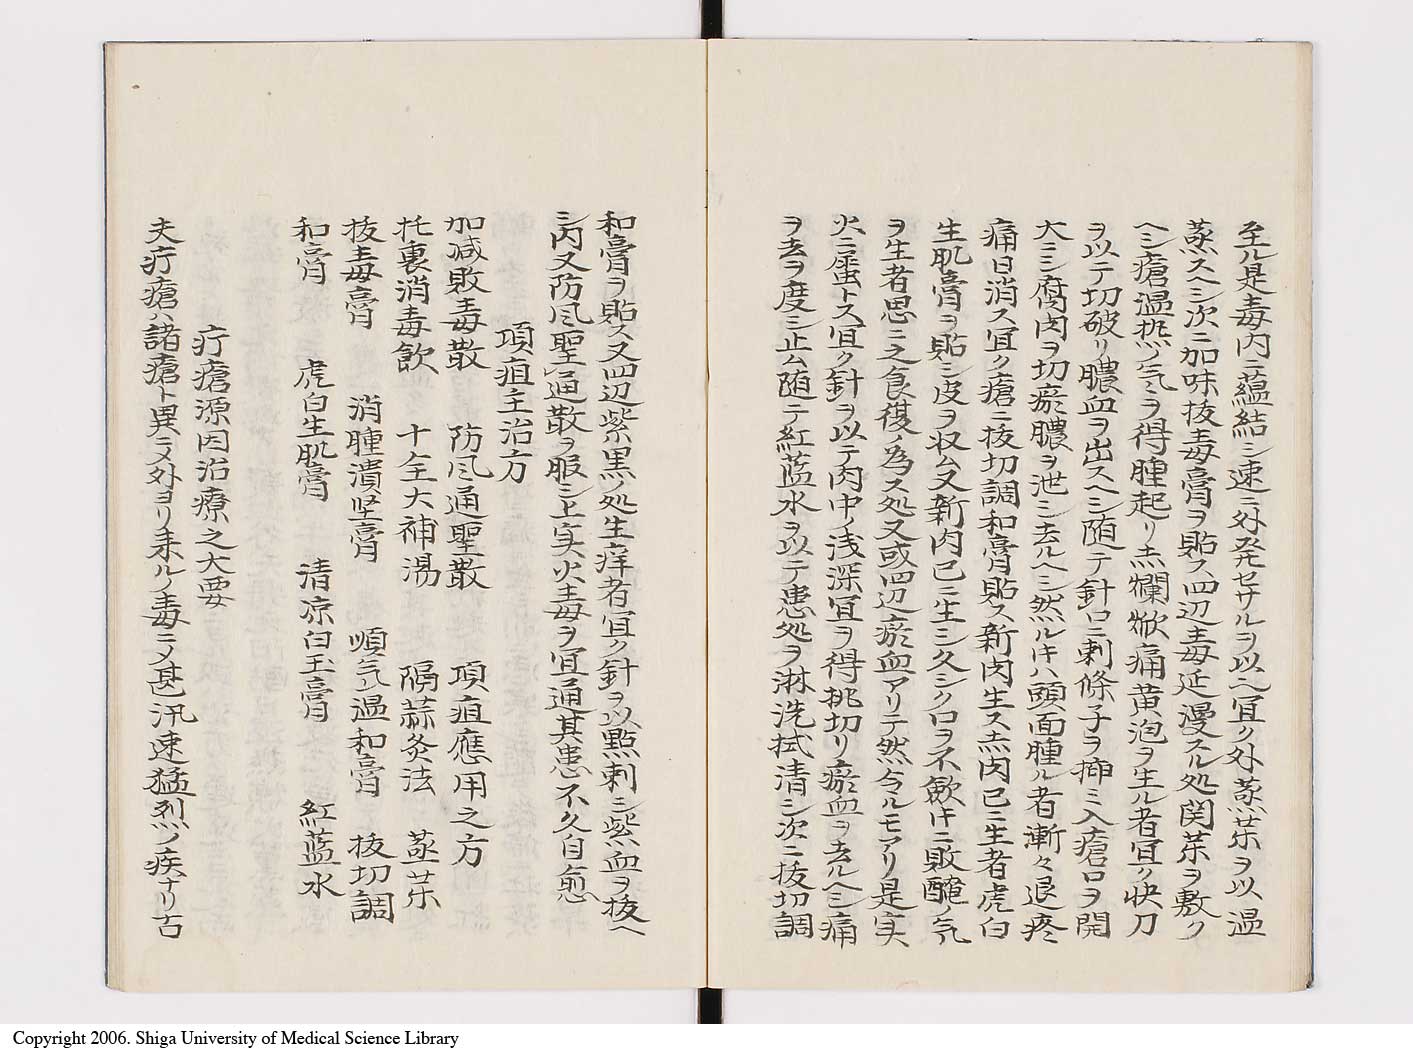 至ル是毒内ニ蘊結シ速ニ外発セサルヲ以也宜ク外蒸茱ヲ以温
蒸スヘシ次ニ加味抜毒膏ヲ貼ス四辺毒延漫スル処関茱ヲ敷ク
ヘシ瘡温熱ノ気ヲ得腫起リ赤爛焮痛黄泡ヲ生ル者宜ク快刀
ヲ以テ切破リ膿血ヲ出スヘシ随テ針口ニ刺條子ヲ挿ミ入瘡口ヲ開
大ニシ腐肉ヲ切瘀膿ヲ泄シ去ルヘシ然ル片ハ頭面腫ル者漸々退疼
痛日消ス宜ク瘡ニ抜切調和膏貼ス新肉生ス赤肉已ニ生者虎白
生肌膏ヲ貼シ皮ヲ収ム又新肉已ニ生シ久シク口ヲ不歛片ニ敗醃ノ気
ヲ生者思ニ之食復ノ為ス処又或四辺瘀血アリテ然令ルモアリ是実
火ニ属ストス宜ク針ヲ以テ肉中ノ浅深宜ヲ得挑切リ瘀血ヲ去ルヘシ痛
ヲ去ヲ度ニ止ム随テ紅藍水ヲ以テ患処ヲ淋洗拭清シ次ニ抜切調
和膏ヲ貼ス又四辺紫黒ノ処生痒者宜ク針ヲ以點刺シ紫血ヲ抜ヘ
シ内又防风聖通散ヲ服シ上実火毒ヲ宜通其患不久自愈
項疽主治方
加减敗毒散 防风通聖散 項疽應用之方
托裏消毒飲 十全大補湯 隔蒜灸法 蒸茱
抜毒膏 消腫潰坚膏 順気温和膏 抜切調
和膏 虎白生肌膏 清凉白玉膏 紅藍水
疔瘡源因治療之大要
夫疔瘡ハ諸瘡ト異ニメ外ヨリ来ルノ毒ニメ甚汛速猛烈ノ疾ナリ古
Copyright 2006. Shiga University of Medical Science Library